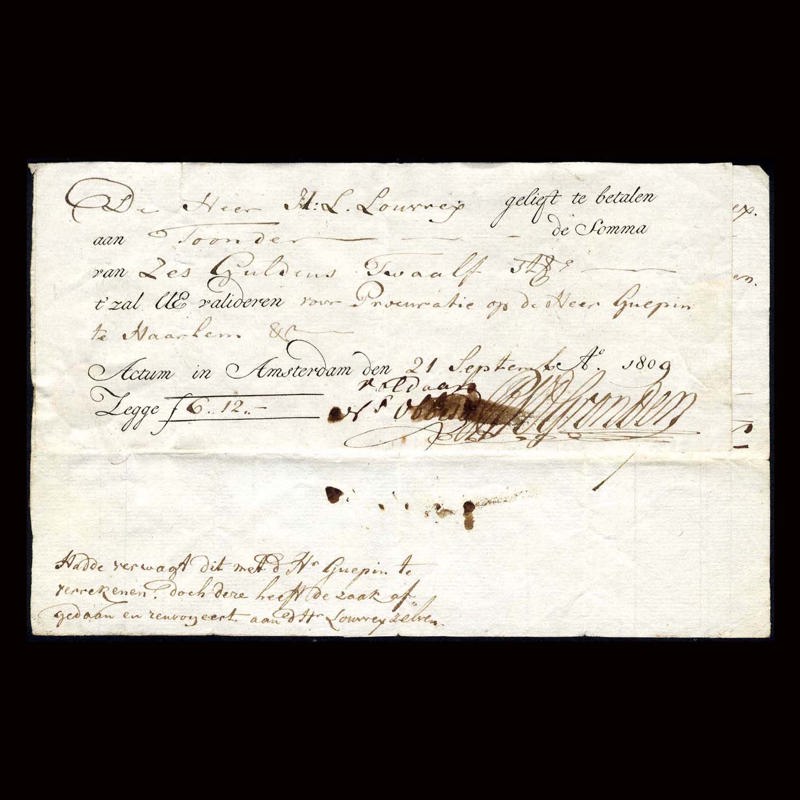 De Heer H: L. Louvrex gelieft te betalen
aan Toonder de Somma
van Zes Guldens Twaalf
t'zal UE valideren voor Procuratie op de Heer Guepin
te Haarlem &c
Actum in Amsterdam den 21 September Ao. 1809
Zegge f 6.. 12..-
voldaan
Hadde verwagt dit met d Hr Guepin te
verrekenen. doch deze heeft de zaak af
gedaan en renvoyeert aan d Hr Louvrex zelven.
ex.
en.